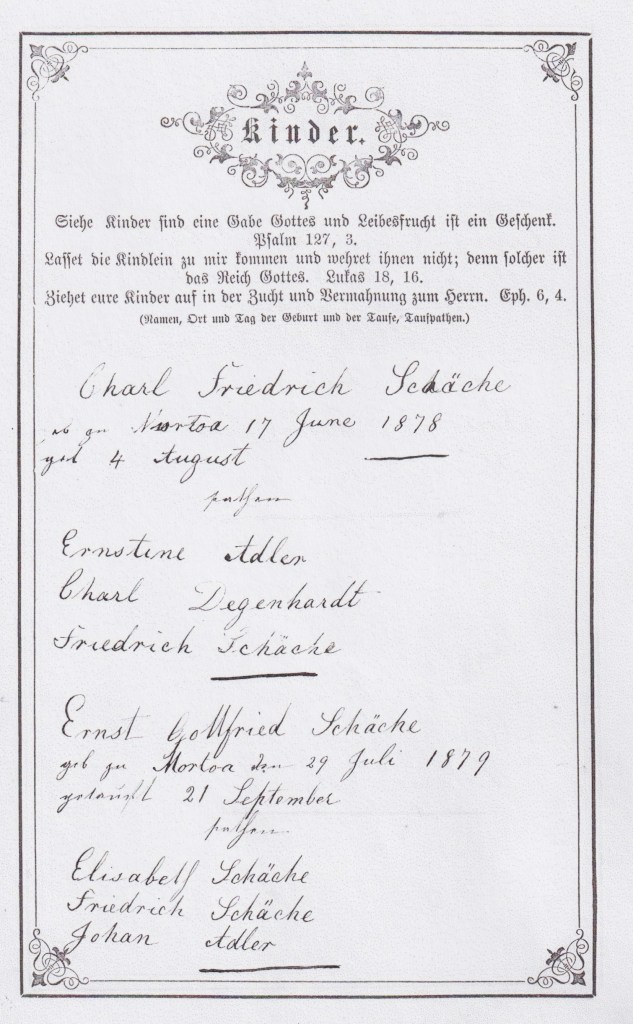 Kinder.
Siehe Kinder sind eine Gabe Gottes und Leibesfrucht ist ein Geschenk.
Psalm 127, 3.
Lasset die Kindlein zu mir kommen und wehret ihnen nicht; denn solcher ist
das Reich Gottes. Lukas 18, 16.
Ziehet eure Kinder auf in der Zucht und Vermahnung zum Herrn. Eph. 6, 4.
(Namen, Ort und Tag der Geburt und der Taufe, Taufpathen.)
Charl Friedrich Schäche
zu Mortoa 17 June 1878
get 4 August
pathen
Ernstine Adler
Charl Degenhardt
Friedrich Schäche
Ernst Gottfried Schäche
geb zu Mortoa den 29 Juli 1879
getauft 21 September
pathen
Elisabeth Schäche
Friedrich Schäche
Johan Adler